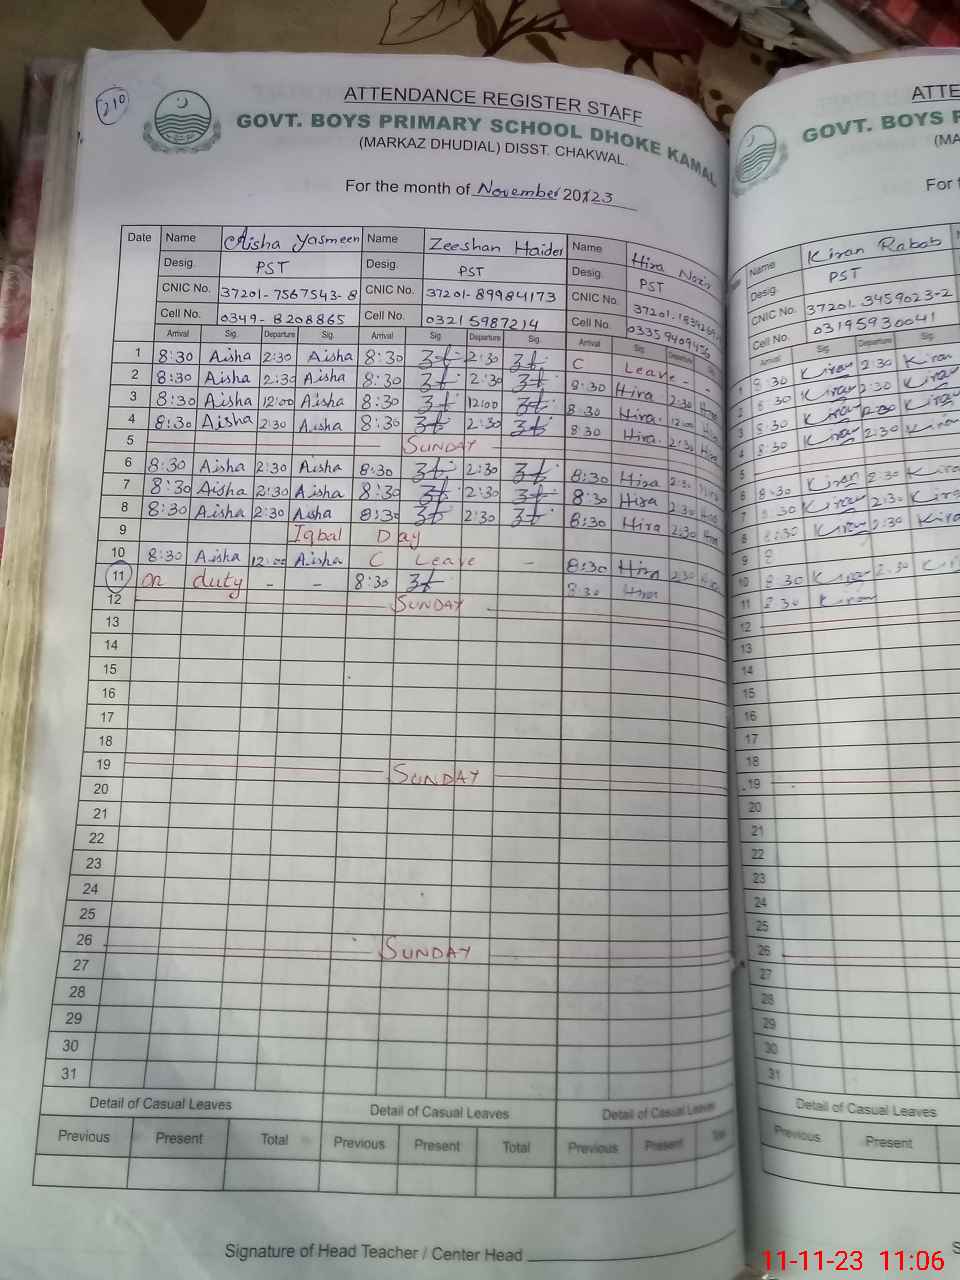 210
ATTENDANCE REGISTER STAFF
GOVT. BOYS PRIMARY SCHOOL DHOKE KAMAL
(MARKAZ DHUDIAL) DISST. CHAKWAL.
For the month of November 2023
Date Name Aisha Yasmeen Name Zeeshan Haider Name Hira Nozir
Desig. PST Desig. PST Desig. PST
CNIC No. 37201-7567543-8 CNIC No. 37201-89984173 CNIC No.
Cell No. 0349-8208865 Cell No. 03215987214 Cell No. 03359409456
Arrival Sig. Departure Sig. Arrival Sig. Departure Sig. Arrival Sig. Departure
1 8:30 Aisha 2:30 Aisha 8:30 2:30 C Leave - -
2 8:30 Aisha 2:30 Aisha 8:30 2:30 8:30 Hira 2:30 Hira
3 8:30 Aisha 12:00 Aisha 8:30 12:00 8:30 Hira 12:00 Hira
4 8:30 Aisha 2:30 Aisha 8:30 2:30 8:30 Hira 2:30 Hira
5 SUNDAY
6 8:30 Aisha 2:30 Aisha 8:30 2:30 8:30 Hira 2:30 Hira
7 8:30 Aisha 2:30 Aisha 8:30 2:30 8:30 Hira 2:30 Hira
8 8:30 Aisha 2:30 Aisha 8:30 2:30 8:30 Hira 2:30 Hira
9 Iqbal Day
10 8:30 Aisha 12:00 Aisha C Leave - 8:30 Hira 2:30 Hira
11 on duty - - 8:30 8:30 Hira
12 SUNDAY
13
14
15
16
17
18
19 SUNDAY
20
21
22
23
24
25
26 SUNDAY
27
28
29
30
31
Detail of Casual Leaves Detail of Casual Leaves Detail of Casual Leaves
Previous Present Total Previous Present Total Previous Present Total
Signature of Head Teacher / Center Head
ATTE
GOVT. BOYS P
(MA
For t
Name Kiran Rabab
Desig. PST
CNIC No. 37201-3459023-2
Cell No. 03195930041
Arrival Sig. Departure Sig.
1 8:30 Kiran 2:30 Kiran
2 8:30 Kiran 2:30 Kiran
3 8:30 Kiran Kiran
4 8:30 Kiran 2:30 Kiran
5
6 8:30 Kiran 2:30 Kiran
7 8:30 Kiran 2:30 Kiran
8 8:30 Kiran 2:30 Kiran
9 8
10 8:30 Kiran 2:30 Ki
11 8:30 Kiran
12
13
14
15
16
17
18
19
20
21
22
23
24
25
26
27
28
29
30
31
Detail of Casual Leaves
Previous Present
S
11-11-23 11:06